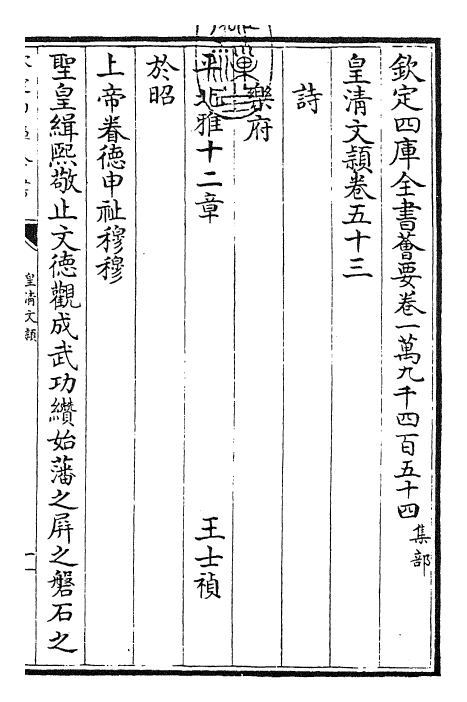 欽定四庫全書薈要卷一萬九千四百五十四 集部
皇清文頴卷五十三
詩
樂府
平北雅十二章 王士禎
於昭
上帝眷德申祉穆穆
聖皇緝熙敬止文德觀成武功纘始藩之屏之磐石之
皇清文頴